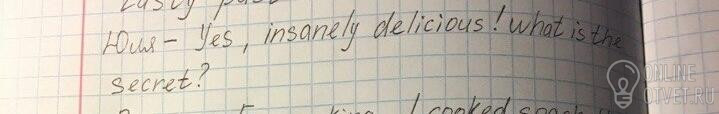 Юля – Yes, insanely delicious! What is the
secret?
I cooked
ONLINE
OTVET.RU